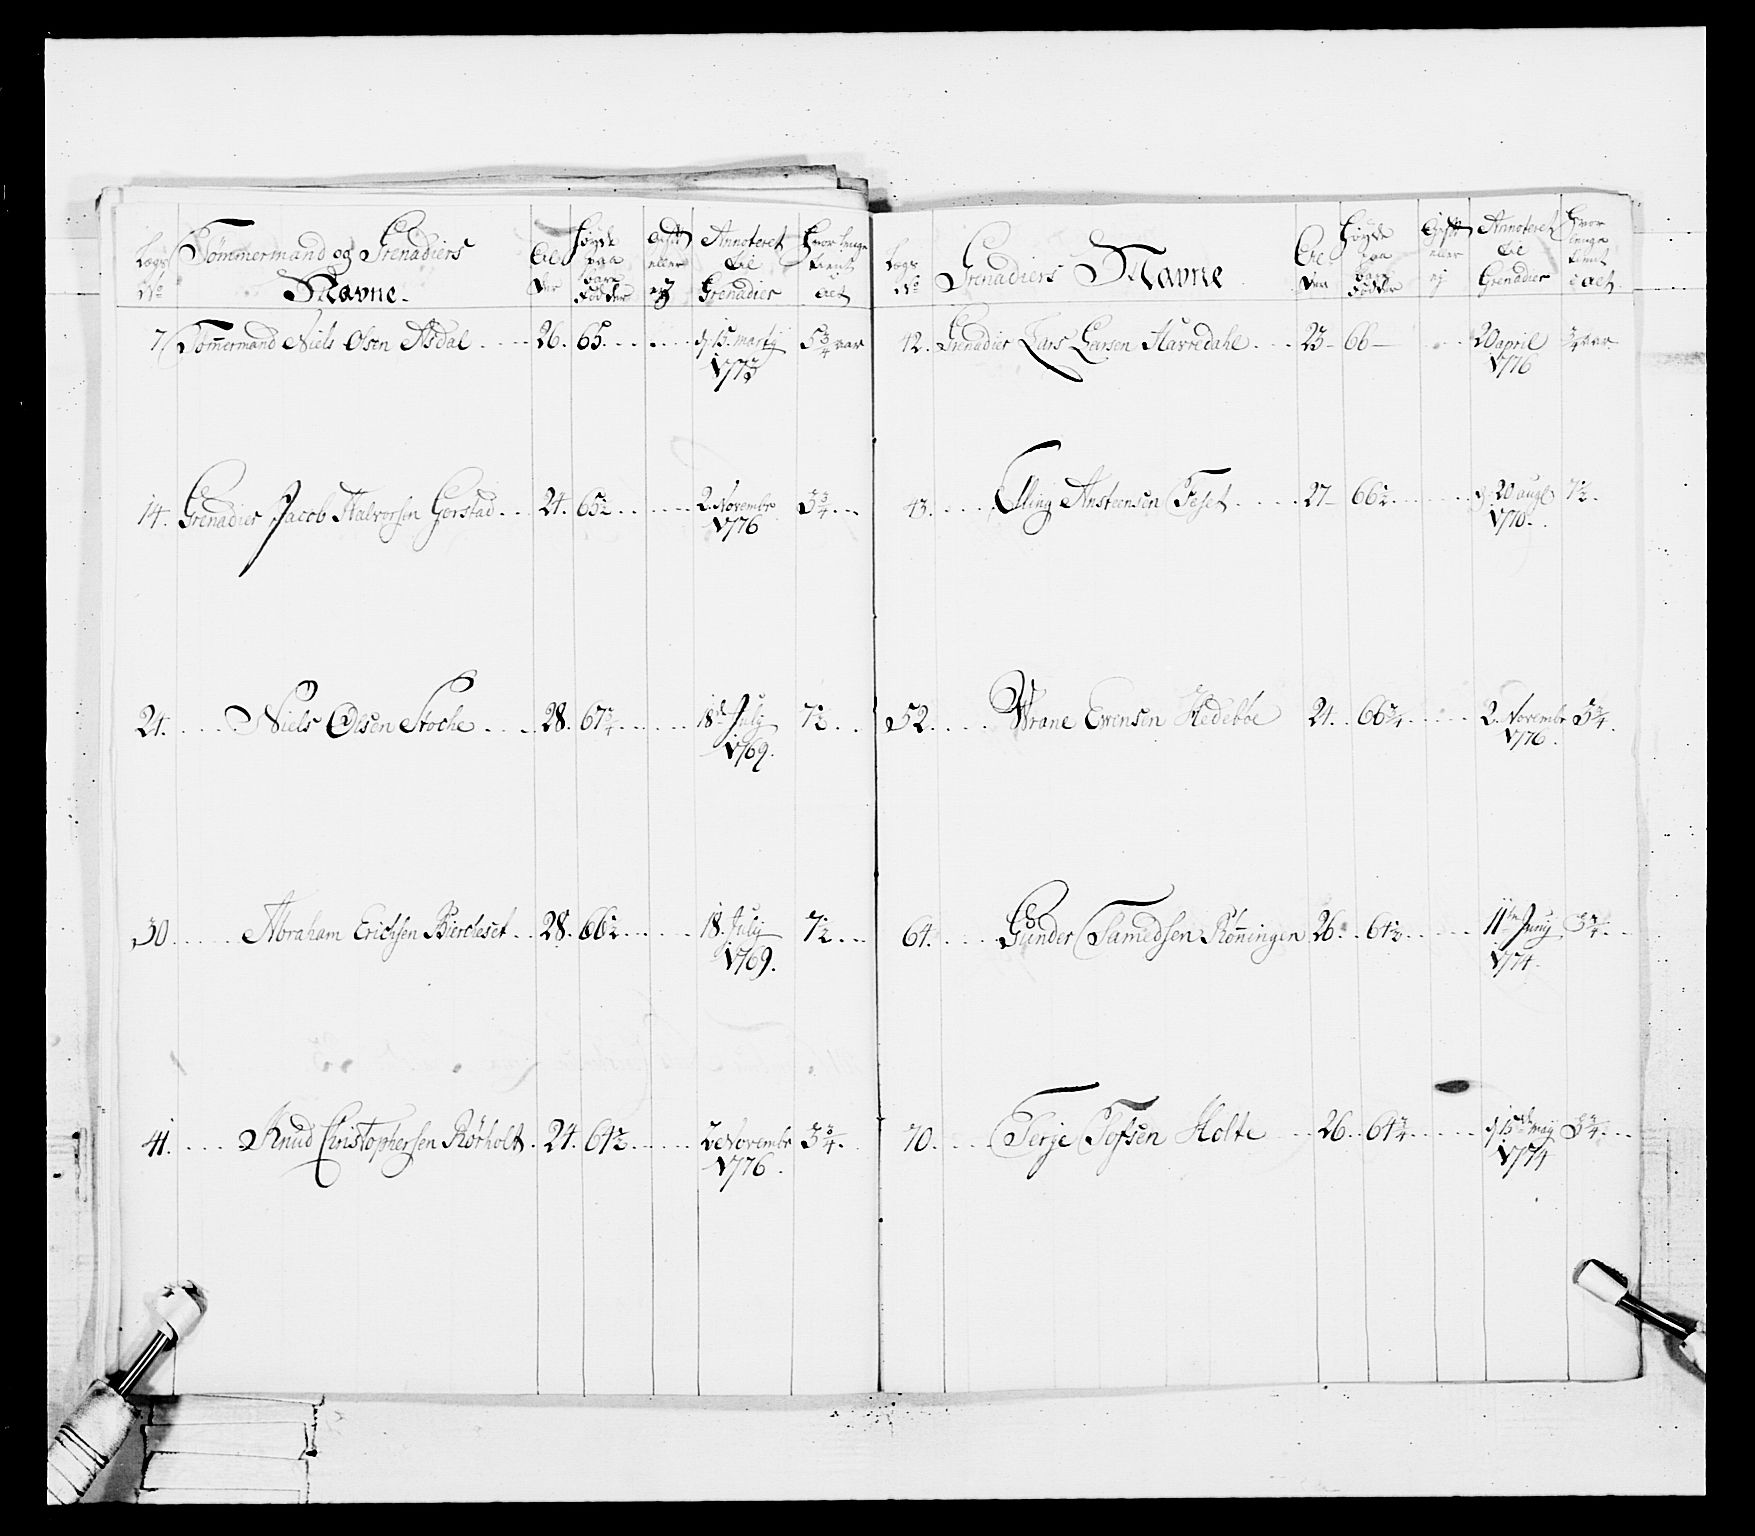 Lægs No
Tömmermand og Grenadiers Navne.
Alder
Höyde paa bare Födder
Gift eller ej
Annoteret til Grenadier
Hvor længe tient i alt
7. Tömermand Niels Olsen Asdal 26. 65. d 15. martij 1773 5 3/4 aar
14. Grenadier Jacob Halvorsen Gerstad 24. 65 1/2 2. Novembr 1776 3 3/4
24. Niels Olsen Stoche 28. 67 3/4 18d July 1769. 7 1/2
30. Abraham Erichsen Bierckeset 28. 66 1/2 18. July 1769. 7 1/2
41. Knud Christophersen Rörholt 24. 64 1/2 2 Novembr 1776. 3 3/4
Lægs No
Grenadiers Navne
Alder
Höyde paa bare Födder
Gift eller ej
Annoteret til Grenadier
Hvor længe tient i alt
42. Grenadier Lars Larsen Havredahl 23 66 20 april 1776 3/4 aar
43. Elling Ansteensen Feset 27 66 1/2 d. 20 aug 1770. 7 1/2
52. Wrane Evensen Hedeböe 24. 66 3/4 2. Novembr 1776. 3 3/4
64. Gunder Samedsen Rönningen 26. 64 1/2 11te Junij 1774. 3 3/4
70. Terje Tofsen Holte 26. 64 3/4 d 15de may 1774 3 3/4